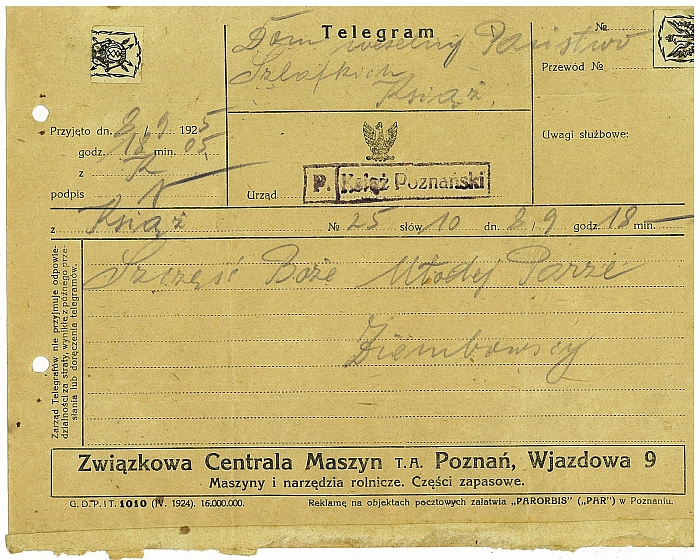 Telegram
Dom weselny Państwo
Książ
№
Przewód №
Uwagi służbowe:
Przyjęto dn. 8/9 1925
godz. 18 min. 05
z
podpis
Urząd
P. Książ Poznański
z Książ № 25 słów 10 dn. 8/9 godz. 18 min. —
Szczęść Boże Młodej Parze
Ziembowscy
Zarząd Telegrafów nie przyjmuje odpowie-
dzialności za straty, wynikłe z późnego prze-
słania lub doręczenia telegramów.
Związkowa Centrala Maszyn T.A. Poznań, Wjazdowa 9
Maszyny i narzędzia rolnicze. Części zapasowe.
G. D. P. i T. 1010 (IV. 1924). 16.000.000.
Reklamę na objektach pocztowych załatwia „PARORBIS" („PAR") w Poznaniu.